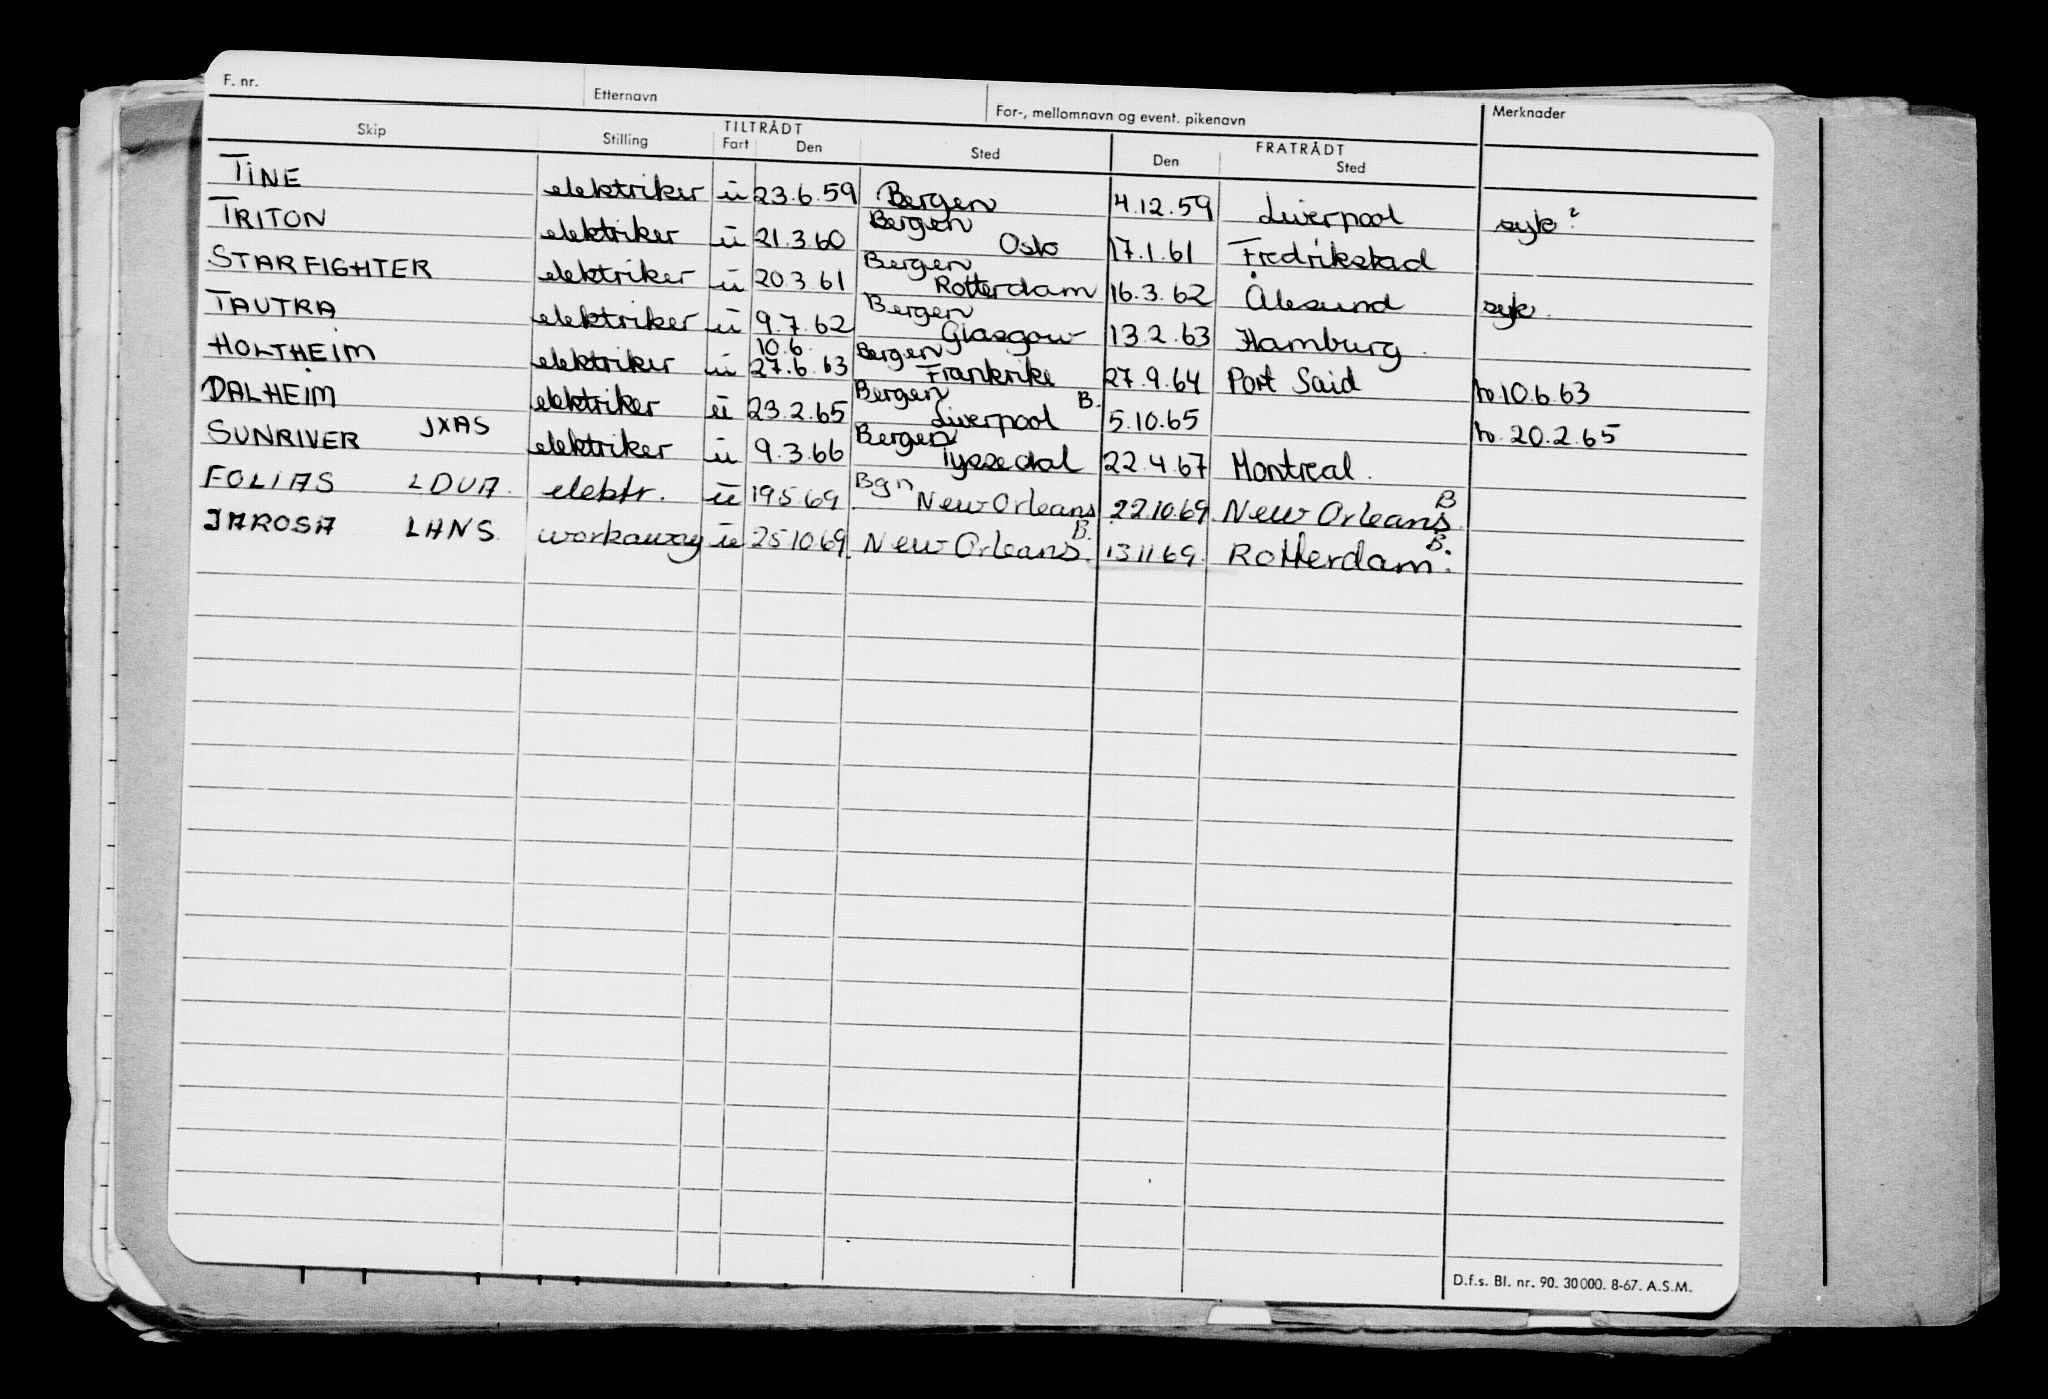 F. nr. Etternavn For-, mellomnavn og event. pikenavn Merknader
Skip Stilling TILTRÅDT Fart Den Sted FRATRÅDT Den Sted
TINE elektriker u 23.6.59 Bergen 4.12.59 Liverpool syk?
TRITON elektriker u 21.3.60 Bergen Oslo 17.1.61 Fredrikstad
STARFIGHTER elektriker u 20.3.61 Bergen Rotterdam 16.3.62 Ålesund syk.
TAUTRA elektriker u 9.7.62 Bergen Glasgow 13.2.63 Hamburg.
HOLTHEIM elektriker u 10.6. 27.6.63 Bergen Frankrike 27.9.64 Port Said 10.6.63
DALHEIM elektriker u 23.2.65 Bergen Liverpool B. 5.10.65 20.2.65
SUNRIVER JXAS elektriker u 9.3.66 Bergen Tyssedal 22.4.67 Montreal.
FOLIAS LDUA. elektr. u 19.5.69 Bgn New Orleans 22.10.69 New Orleans B.
JAROSA LHNS. workaway u 25.10.69. New Orleans B. 13.11.69. Rotterdam. B.
D.f.s. Bl. nr. 90. 30000. 8-67. A.S.M.